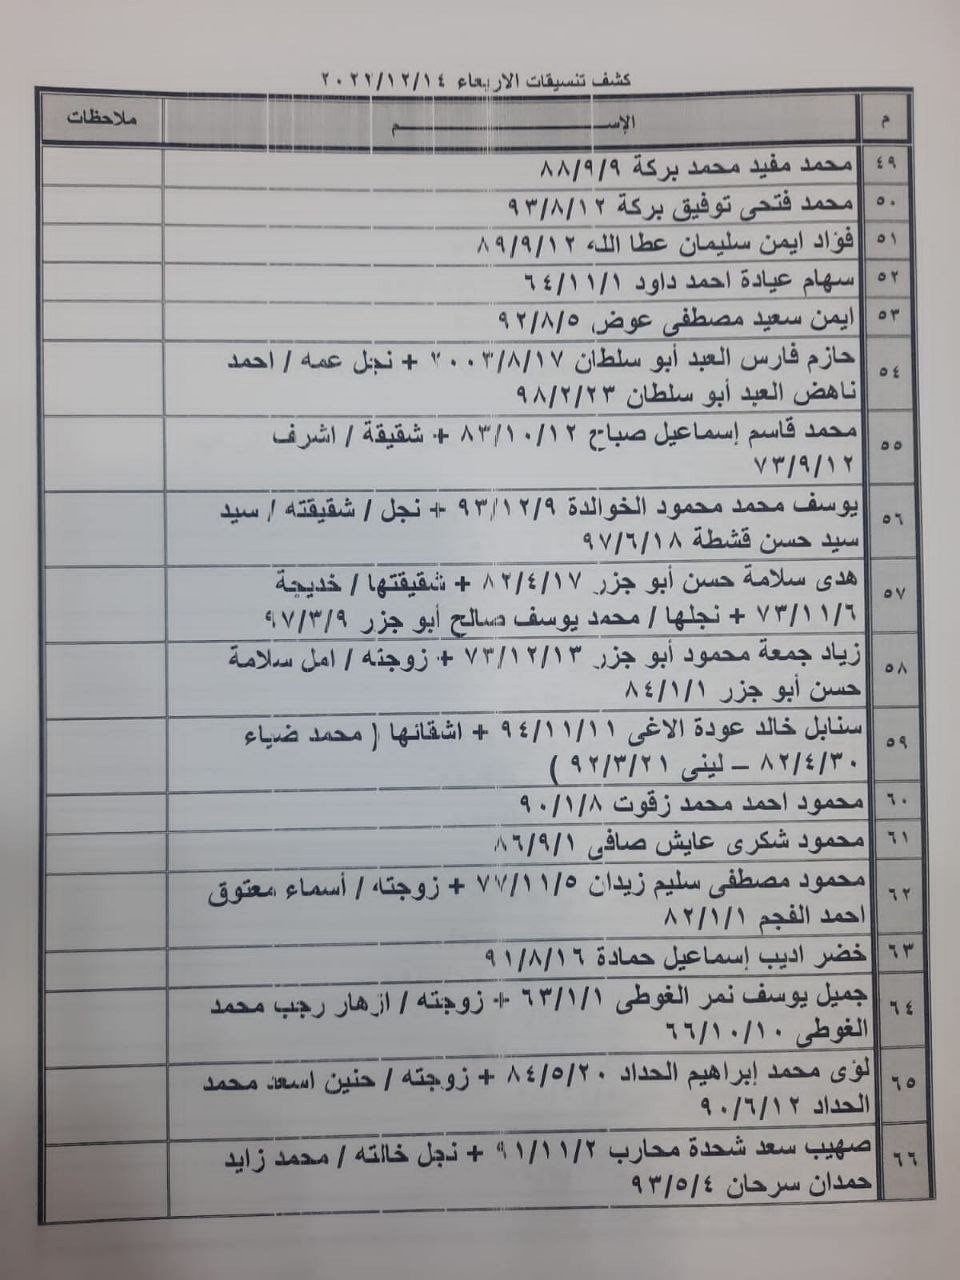 كشف تنسيقات الاربعاء ٢٠٢٢/١٢/١٤
م الإســـــــم ملاحظات
٤٩ محمد مفيد محمد بركة ٨٨/٩/٩
٥٠ محمد فتحى توفيق بركة ٩٣/٨/١٢
٥١ فؤاد ايمن سليمان عطا الله ٨٩/٩/١٢
٥٢ سهام عيادة احمد داود ٦٤/١١/١
٥٣ ايمن سعيد مصطفى عوض ٩٢/٨/٥
٥٤ حازم فارس العبد أبو سلطان ٢٠٠٣/٨/١٧ + نجل عمه / احمد
ناهض العبد أبو سلطان ٩٨/٢/٢٣
٥٥ محمد قاسم إسماعيل صباح ٨٣/١٠/١٢ + شقيقة / اشرف
٧٣/٩/١٢
٥٦ يوسف محمد محمود الخوالدة ٩٣/١٢/٩ + نجل / شقيقته / سيد
سيد حسن قشطة ٩٧/٦/١٨
٥٧ هدى سلامة حسن أبو جزر ٨٢/٤/١٧ + شقيقتها / خديجة
٧٣/١١/٦ + نجلها / محمد يوسف صالح أبو جزر ٩٧/٣/٩
٥٨ زياد جمعة محمود أبو جزر ٧٣/١٢/١٣ + زوجته / امل سلامة
حسن أبو جزر ٨٤/١/١
٥٩ سنابل خالد عودة الاغى ٩٤/١١/١١ + اشقائها ( محمد ضياء
٨٢/٤/٣٠ – لينى ٩٢/٣/٢١ )
٦٠ محمود احمد محمد زقوت ٩٠/١/٨
٦١ محمود شكرى عايش صافى ٨٦/٩/١
٦٢ محمود مصطفى سليم زيدان ٧٧/١١/٥ + زوجته / أسماء معتوق
احمد الفجم ٨٢/١/١
٦٣ خضر اديب إسماعيل حمادة ٩١/٨/١٦
٦٤ جميل يوسف نمر الغوطى ٦٣/١/١ + زوجته / ازهار رجب محمد
الغوطى ٦٦/١٠/١٠
٦٥ لؤى محمد إبراهيم الحداد ٨٤/٥/٢٠ + زوجته / حنين اسعد محمد
الحداد ٩٠/٦/١٢
٦٦ صهيب سعد شحدة محارب ٩١/١١/٢ + نجل خالته / محمد زايد
حمدان سرحان ٩٣/٥/٤